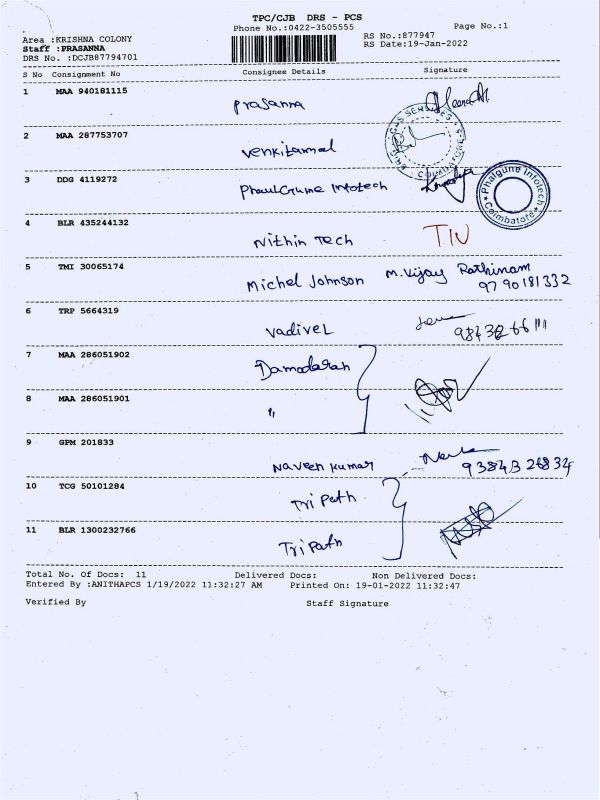 TPC/CJB DRS - PCS
Phone No.:0422-3505555
Page No.:1
Area :KRISHNA COLONY
RS No.:877947
Staff :PRASANNA
RS Date:19-Jan-2022
DRS No. :DCJB87794701
S No Consignment No Consignee Details Signature
1 MAA 940181115 Prasanna
2 MAA 287753707 Venkitamal
COIMBATORE
3 DDG 4119272 PhaulGume Infotech
Phalgune Infotech
Coimbatore
4 BLR 435244132 Nithin Tech TIN
5 TMI 30065174 Michel Johnson M.Vijay Rathinam
9790181332
6 TRP 5664319 Vadivel
7 MAA 286051902 Damodaran
8 MAA 286051901 "
9 GPM 201833 Naveen Kumar
10 TCG 50101284 Tri Path
11 BLR 1300232766 Tri Path
Total No. Of Docs: 11 Delivered Docs: Non Delivered Docs:
Entered By :ANITHAPCS 1/19/2022 11:32:27 AM Printed On: 19-01-2022 11:32:47
Verified By Staff Signature